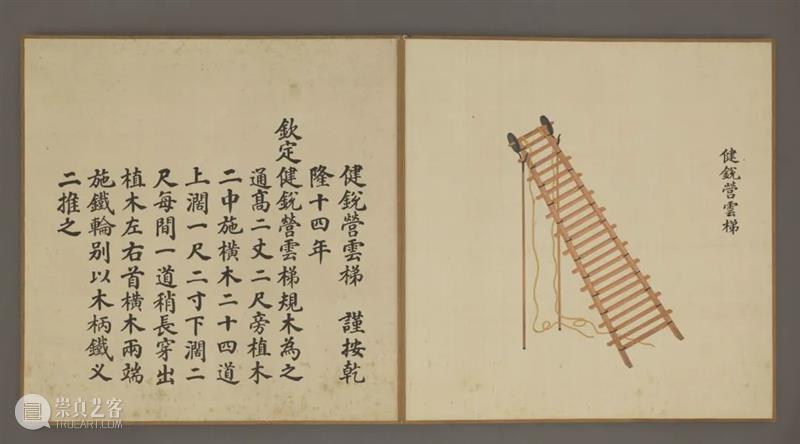 健銳營雲梯
健銳營雲梯　謹按乾
隆十四年
欽定健銳營雲梯規木為之
通高二丈二尺旁植木
二中施橫木二十四道
上濶一尺二寸下濶二
尺每間一道稍長穿出
植木左右首橫木兩端
施鐵輪別以木柄鐵义
二推之
崇真艺客
TRUEART.COM